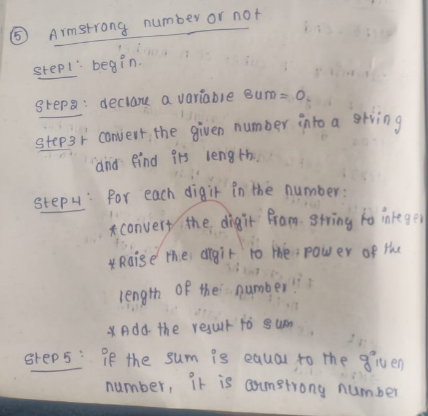 ⑤ Armstrong number or not
Step1: begin.
Step2: declare a variable sum = 0.
Step3: convert the given number into a string
and find its length.
Step4: for each digit in the number:
*convert the digit from string to integer
*Raise the digit to the power of the
length of the number
* Add the result to sum
Step 5: if the sum is equal to the given
number, it is armstrong number